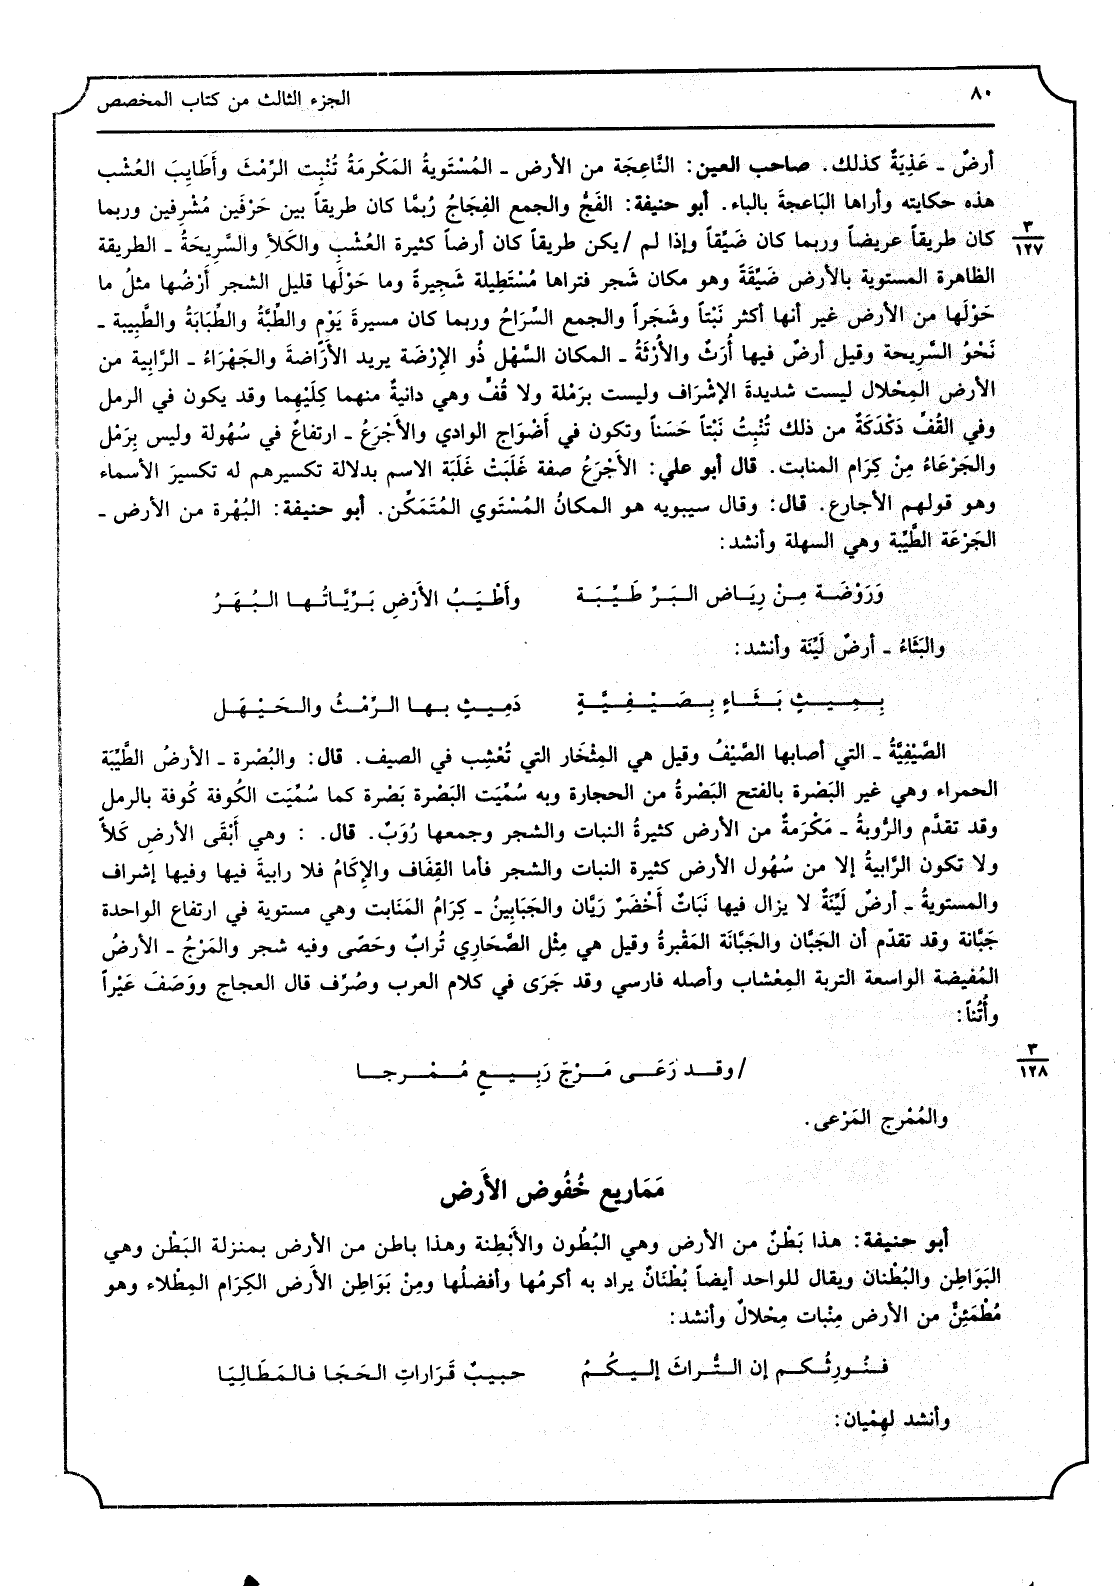 ٨٠
الجزء الثالث من كتاب المخصص
أرضٌ ـ عَذِيَةٌ كذلك. صاحب العين: النَّاعِجَة من الأرض ـ المُسْتَوِيةُ المَكْرمَةُ تُنْبِت الرِّمْثَ وأَطَايِبَ العُشْب
هذه حكايته وأراها البَاعجةَ بالباء. أبو حنيفة: الفَجُّ والجمع الفِجَاجُ رُبمَّا كان طريقاً بين حَرْفَين مُشْرِفين وربما
كان طريقاً عريضاً وربما كان ضَيِّقاً وإذا لم /يكن طريقاً كان أرضاً كثيرة العُشْبِ والكَلأِ والسَّرِيحَةُ ـ الطريقة
٣
١٢٧
الظاهرة المستوية بالأرض ضَيِّقَةً وهو مكان شجر فتراها مُسْتَطِيلة شَجِيرةً وما حَوْلَها قليل الشجر أَرْضُها مثلُ ما
حَوْلَها من الأرض غير أنها أكثر نَبْتاً وشَجَراً والجمع السِّرَاحُ وربما كان مسيرةَ يَوْمٍ والطِّبَّةُ والطِّبَابَةُ والطَّبِيبة ـ
نَحْوُ السَّرِيحة وقيل أرضٌ فيها أُرَثٌ والأُرْثَةُ ـ المكان السَّهْل ذُو الإِرْضَة يريد الأَرَّاضةَ والجَهْرَاءُ ـ الرَّابِية من
الأرض المِحْلال ليست شديدةَ الإشْرَاف وليست برَمْلة ولا قُفٍّ وهي دانيةٌ منهما كِلَيْهِما وقد يكون في الرمل
وفي القُفِّ دَكْدَكَةٌ من ذلك تُنْبِتُ نَبْتاً حَسَناً وتكون في أَضْوَاج الوادي والأجْرَعُ ـ ارتفاعٌ في سُهُولة وليس بِرَمْل
والجَرْعَاءُ مِنْ كِرَام المنابت. قال أبو علي: الأَجْرَعُ صفة غَلَبَتْ غَلَبَة الاسم بدلالة تكسيرهم له تكسيرَ الأسماء
وهو قولهم الأجارع. قال: وقال سيبويه هو المكانُ المُسْتَوي المُتَمَكِّن. أبو حنيفة: البُهْرة من الأرض ـ
الجَرْعَة الطَّيِّبة وهي السهلة وأنشد:
وَرَوْضَـة مِـنْ رِيَـاض البَـرِّ طَـيِّـبَـة وأَطْـيَـبُ الأَرْضِ بَـرِّيَّـاتُـهـا البُـهَـرُ
والبَثَاءُ ـ أرضٌ لَيِّنَة وأنشد:
بِـمِـيـثٍ بَـثَـاءٍ بِـصَـيْـفِـيَّـةٍ دَمِـيـثٍ بـهـا الـرِّمْـثُ والـحَـيْـهَـل
الصَّيْفِيَّةُ ـ التي أصابها الصَّيْفُ وقيل هي المِتْخَار التي تُعْشِب في الصيف. قال: والبُصْرة ـ الأرضُ الطَّيِّبَة
الحمراء وهي غير البَصْرة بالفتح البَصْرةُ من الحجارة وبه سُمِّيَت البَصْرة بَصْرة كما سُمِّيَت الكُوفة كُوفة بالرمل
وقد تقدَّم والرُّوبةُ ـ مَكْرَمةٌ من الأرض كثيرةُ النبات والشجر وجمعها رُوَبٌ. قال. : وهي أَبْقَى الأرضِ كَلأً
ولا تكون الرَّابيةُ إلا من سُهُول الأرض كثيرة النبات والشجر فأما القِفَاف والإِكَامُ فلا رابيةَ فيها وفيها إشراف
والمستويةُ ـ أرضٌ لَيِّنَةٌ لا يزال فيها نَبَاتٌ أَخْضَرٌ رَيَّان والجَبَابِينُ ـ كِرَامُ المَنَابت وهي مستوية في ارتفاع الواحدة
جَبَّانة وقد تقدّم أن الجَبَّان والجَبَّانَة المَقْبرةُ وقيل هي مِثْل الصَّحَاري تُرابٌ وحَصًى وفيه شجر والمَرْجُ ـ الأرضُ
المُفيضة الواسعة التربة المِعْشاب وأصله فارسي وقد جَرَى في كلام العرب وصُرِّف قال العجاج ووَصَفَ عَيْراً
وأُتُناً:
/وقـد رَعَـى مَـرْجَ رَبِـيـعٍ مُـمْـرجـا
٣
١٢٨
والمُمْرج المَرْعى.
مَمَاريع خُفُوض الأَرض
أبو حنيفة: هذا بَطْنٌ من الأرض وهي البُطُون والأَبْطِنة وهذا باطن من الأرض بمنزلة البَطْن وهي
البَوَاطِن والبُطْنان ويقال للواحد أيضاً بُطْنَانٌ يراد به أكرمُها وأفضلُها ومِنْ بَوَاطِن الأَرض الكِرَام المِطْلاء وهو
مُطْمَئِنٌّ من الأرض مِنْبات مِحْلالٌ وأنشد:
فـنُـورِثُـكـم إن الـتُّـراثَ إلـيـكُـمُ حـبـيـبٌ قَـرَاراتِ الـحَـجَـا فـالـمَـطَـالِـيَـا
وأنشد لهِمْيان: